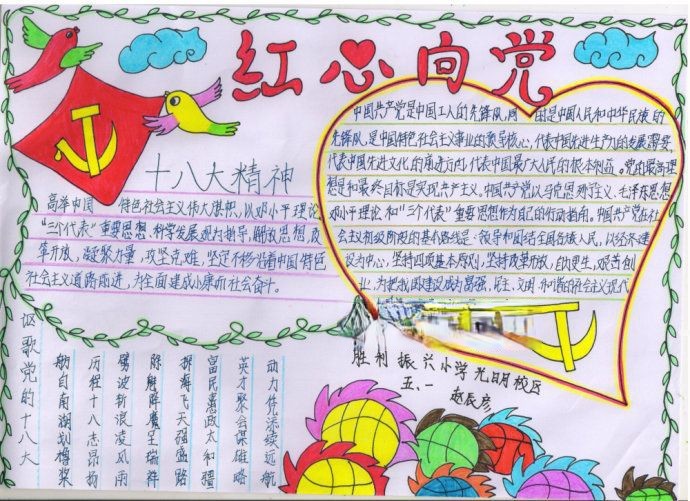 红心向党
十八大精神
高举中国 特色社会主义伟大旗帜,以邓小平理论
"三个代表"重要思想,科学发展观为指导,解放思想,改
革开放,凝聚力量,攻坚克难,坚定不移沿着中国特色
社会主义道路前进,为全面建成小康而社会奋斗。
中国共产党是中国工人的先锋队,同 的是中国人民和中华民族的
先锋队,是中国特色社会主义事业的领导核心,代表中国先进生产力的发展需要,
代表中国先进文化的前进方向,代表中国最广大人民的根本利益。党的最高理
想是和最终目标是实现共产主义,中国共产党以马克思列宁主义、毛泽东思想
邓小平理论和"三个代表"重要思想作为自己的行动指南。中国共产党在社
会主义初级阶段的基本路线是:领导和团结全国各族人民,以经济建
设为中心,坚持四项基本原则,坚持改革开放,自力更生,艰苦创
业,为把我国建设成为富强、民主、文明、和谐的社会主义现代
胜利振兴小学光明校区
五、一
赵辰彦
讴歌党的十八大
舫自南湖划橹桨
历程十八志昂扬
劈波斩浪凌风雨
除魔降魔呈瑞祥
探海飞天强盛路
富民惠政太和疆
英才聚会谋雄略
动力凭添续远航